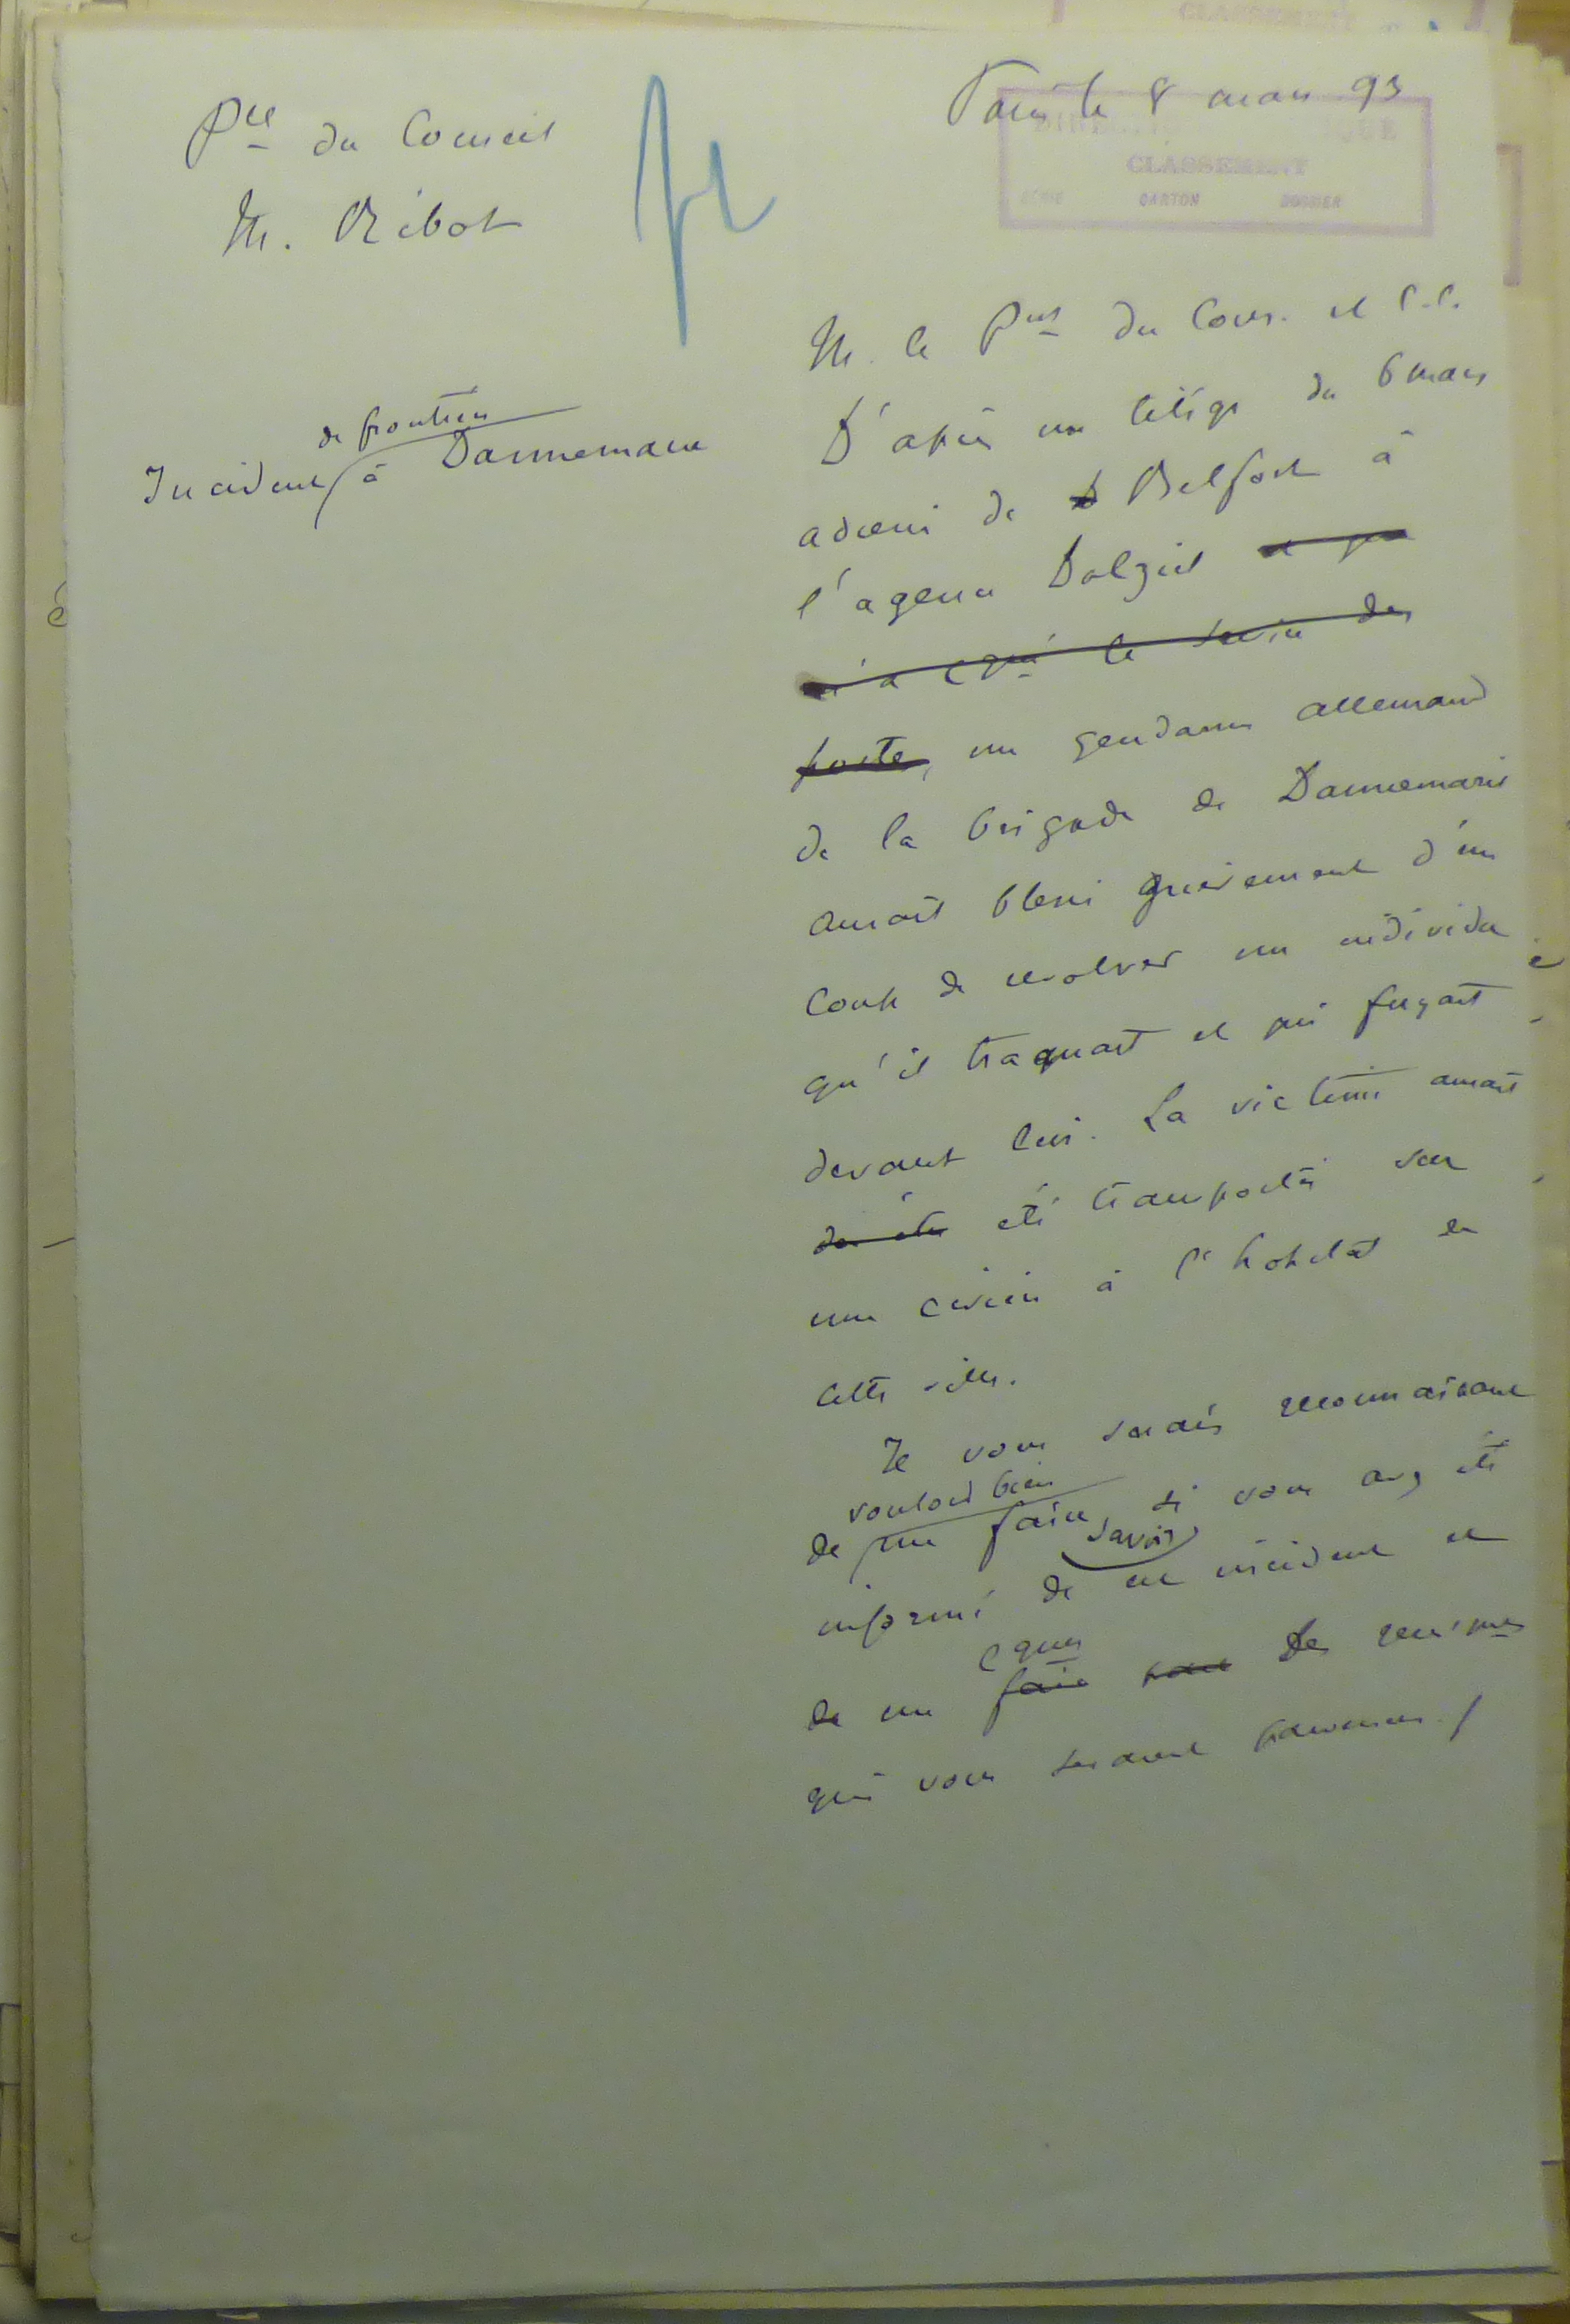 Paris le 8 mars 93
DIRECTION POLITIQUE
CLASSEMENT
SÉRIE CARTON DOSSIER
Pce du Conseil
M. Ribot
de frontière
Incident à Dannemarie
M. le Pdt du Cons. et C. C.
D'après un télégr du 6 mars
adressé de Belfort à
l'agence Dalziel et que
m'a cqué le Service des
postes, un gendarme allemand
de la brigade de Dannemarie
aurait blessé grièvement d'un
coup de revolver un individu
qu'il traquait et qui fuyait
devant lui. La victime aurait
dû être été transportée sur
une civière à l'hôpital de
cette ville.
Je vous serais reconnaissant
vouloir bien
de me faire savoir si vous avez été
informé de cet incident et
cquer
de me faire les renseignts
qui vous seraient parvenus /